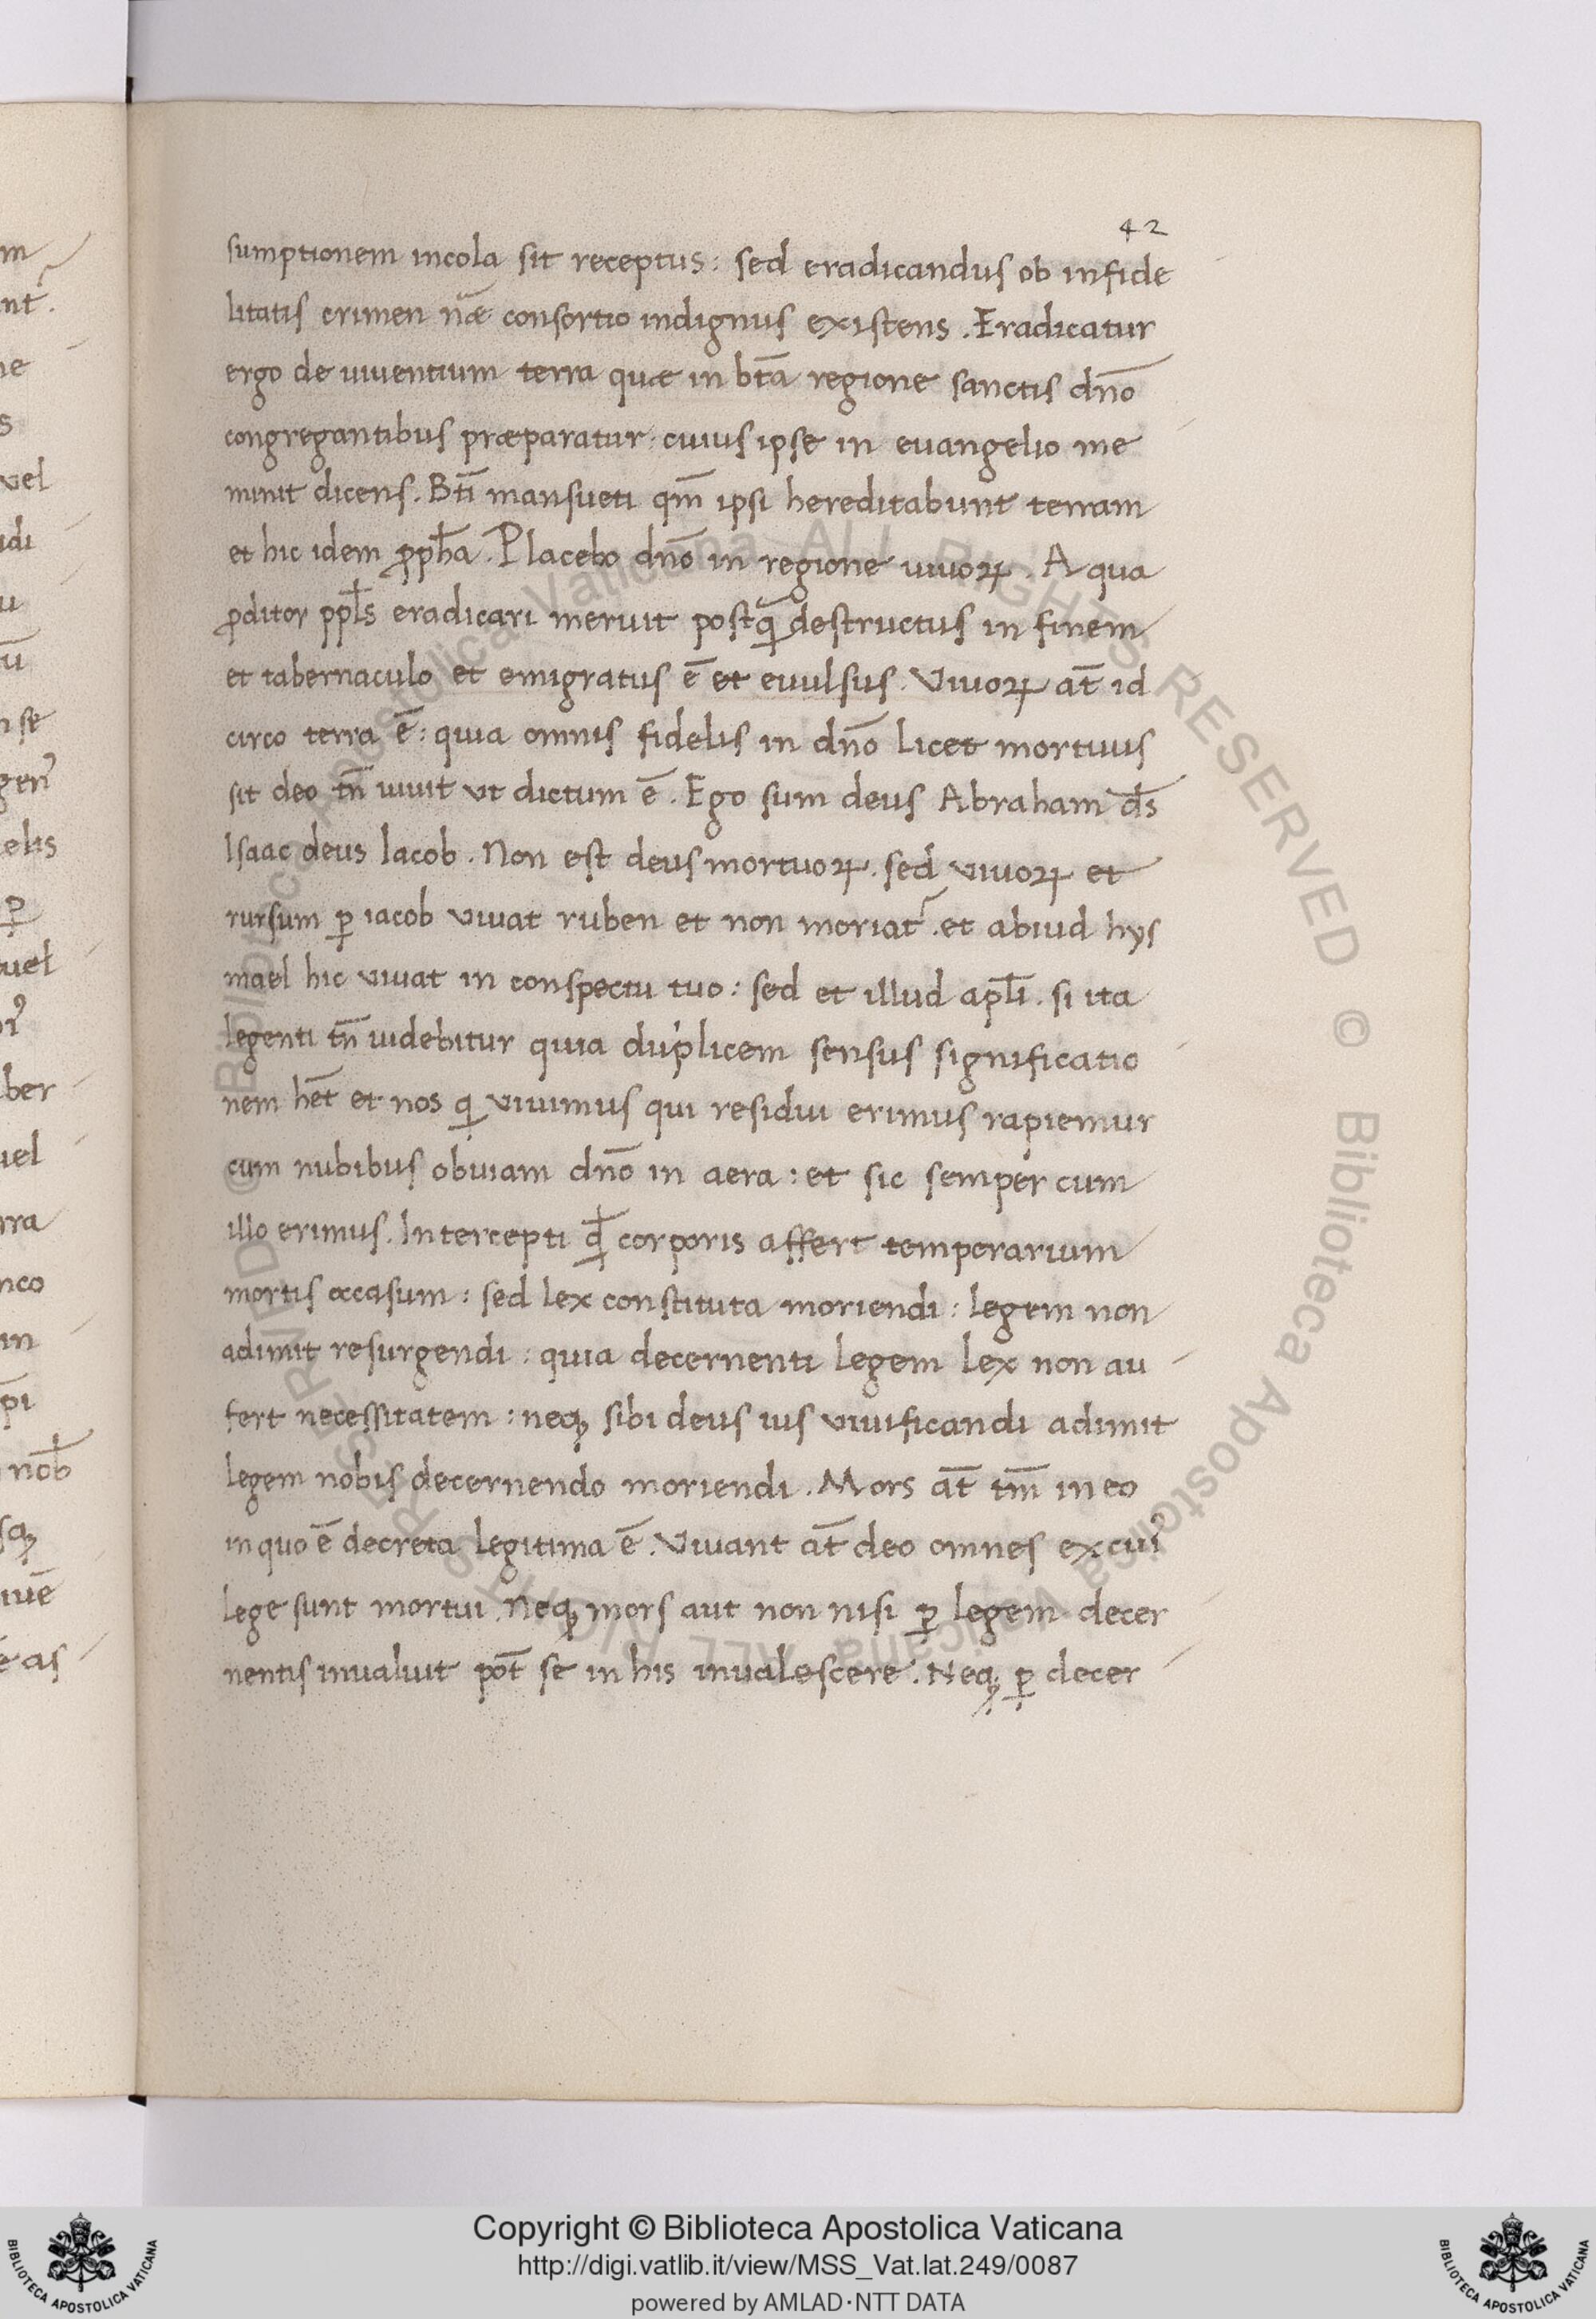 42
sumptionem incola sit receptus: sed eradicandus ob infide
litatis crimen nr̃æ consortio indignus existens. Eradicatur
ergo de uiuentium terra quæ in bt̄a regione sanctis dn̄o
congregantibus præparatur: cuius ipse in euangelio me
minit dicens. Bt̄i mansueti qm̄ ipsi hereditabunt terram
et hic idem ꝓph̄a. Placebo dn̄o in regione uiuoꝝ. A qua
ꝓditor ppl̄s eradicari meruit postq̃ destructus in finem
et tabernaculo et emigratus ē et euulsus. Viuoꝝ at̄ id
circo terra ē: quia omnis fidelis in dn̄o licet mortuus
sit deo tn̄ uiuit vt dictum ē. Ego sum deus Abraham ds̄
Isaac deus Iacob. Non est deus mortuoꝝ. sed viuoꝝ et
rursum ꝑ iacob viuat ruben et non moriat᷑. et abiud hys
mael hic viuat in conspectu tuo: sed et illud apl̄i. si ita
legenti tn̄ uidebitur quia duplicem sensus significatio
nem het̄ et nos q̣ viuimus qui residui erimus rapiemur
cum nubibus obuiam dn̄o in aera: et sic semper cum
illo erimus. Intercepti qd̄ corporis affert temporarium
mortis occasum: sed lex constituta moriendi: legem non
adimit resurgendi: quia decernenti legem lex non au
fert necessitatem: neqꝫ sibi deus ius viuificandi adimit
legem nobis decernendo moriendi. Mors at̄ tm̄ in eo
in quo ē decreta legitima ē. Viuant at̄ deo omnes ex cuiꝰ
lege sunt mortui. Neqꝫ mors aut non nisi ꝑ legem decer
nentis inualuit pot̄ se in his inualescere. Neqꝫ ꝑ decer
Copyright © Biblioteca Apostolica Vaticana
http://digi.vatlib.it/view/MSS_Vat.lat.249/0087
powered by AMLAD·NTT DATA